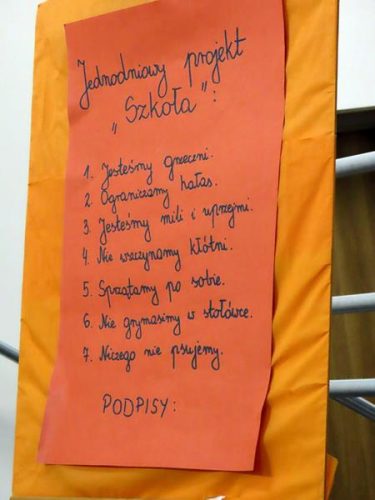 Jednodniowy projekt
„Szkoła":
1. Jesteśmy grzeczni.
2. Ograniczamy hałas.
3. Jesteśmy mili i uprzejmi.
4. Nie wszczynamy kłótni.
5. Sprzątamy po sobie.
6. Nie grymasimy w stołówce.
7. Niczego nie psujemy.
PODPISY: